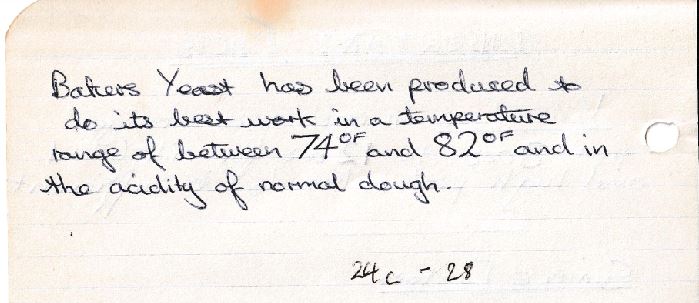 Bakers Yeast has been produced to
do its best work in a temperature
range of between 74°F and 82°F and in
the acidity of normal dough.
24c - 28